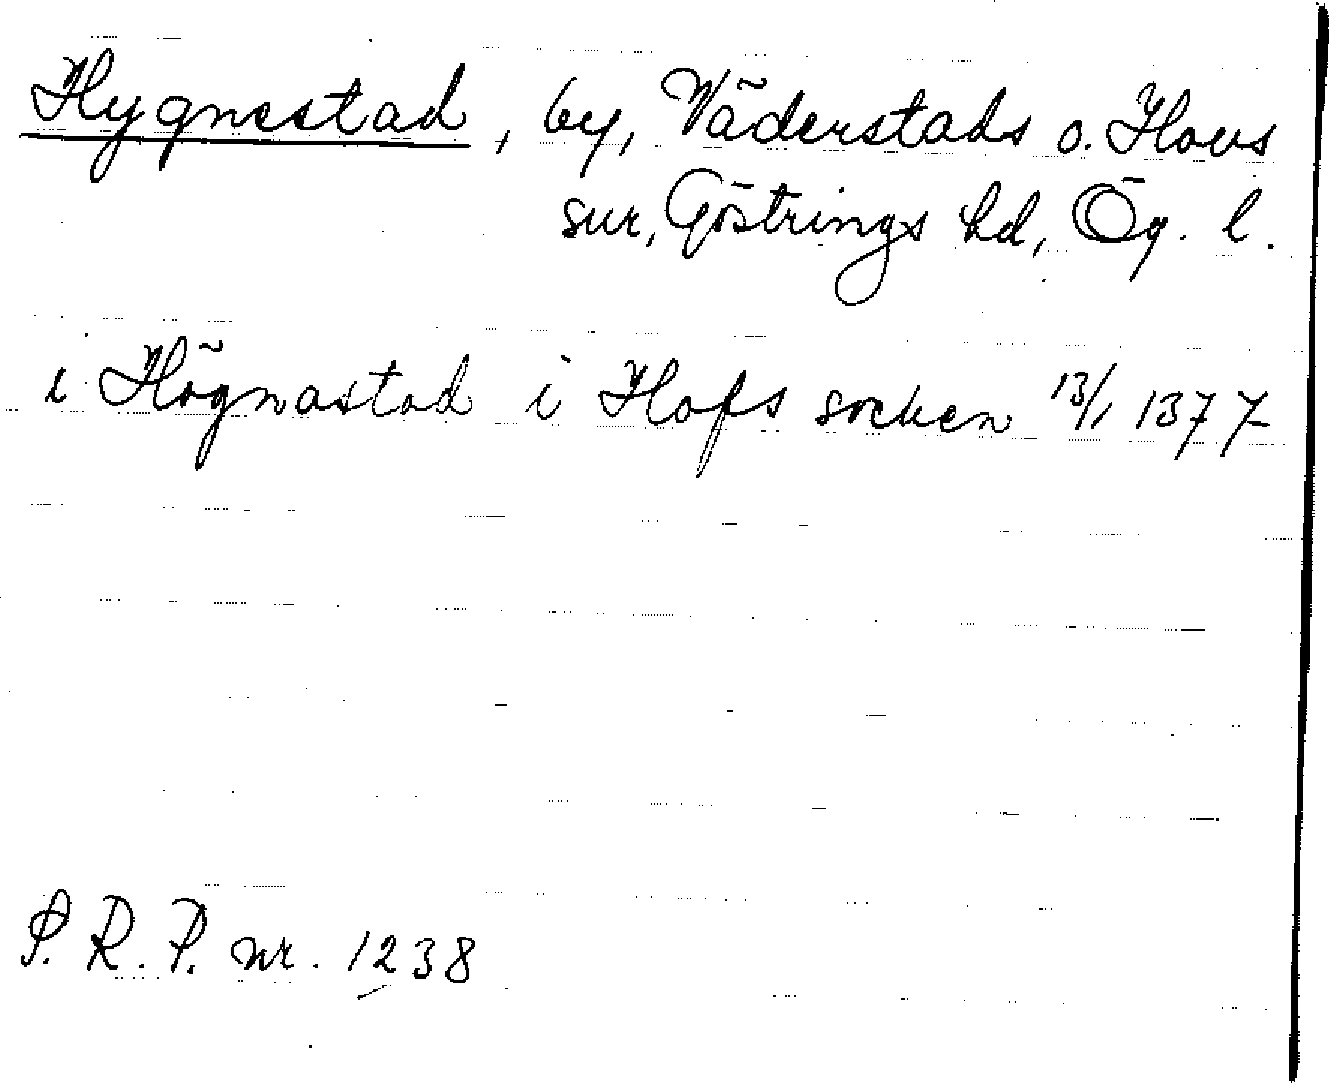 Hygnestad, by, Väderstads o. Hovs
snr, Göstrings hd, Ög. l.
i Högnastad i Hofs socken 13/1 1377
P. R. P. nr. 1238